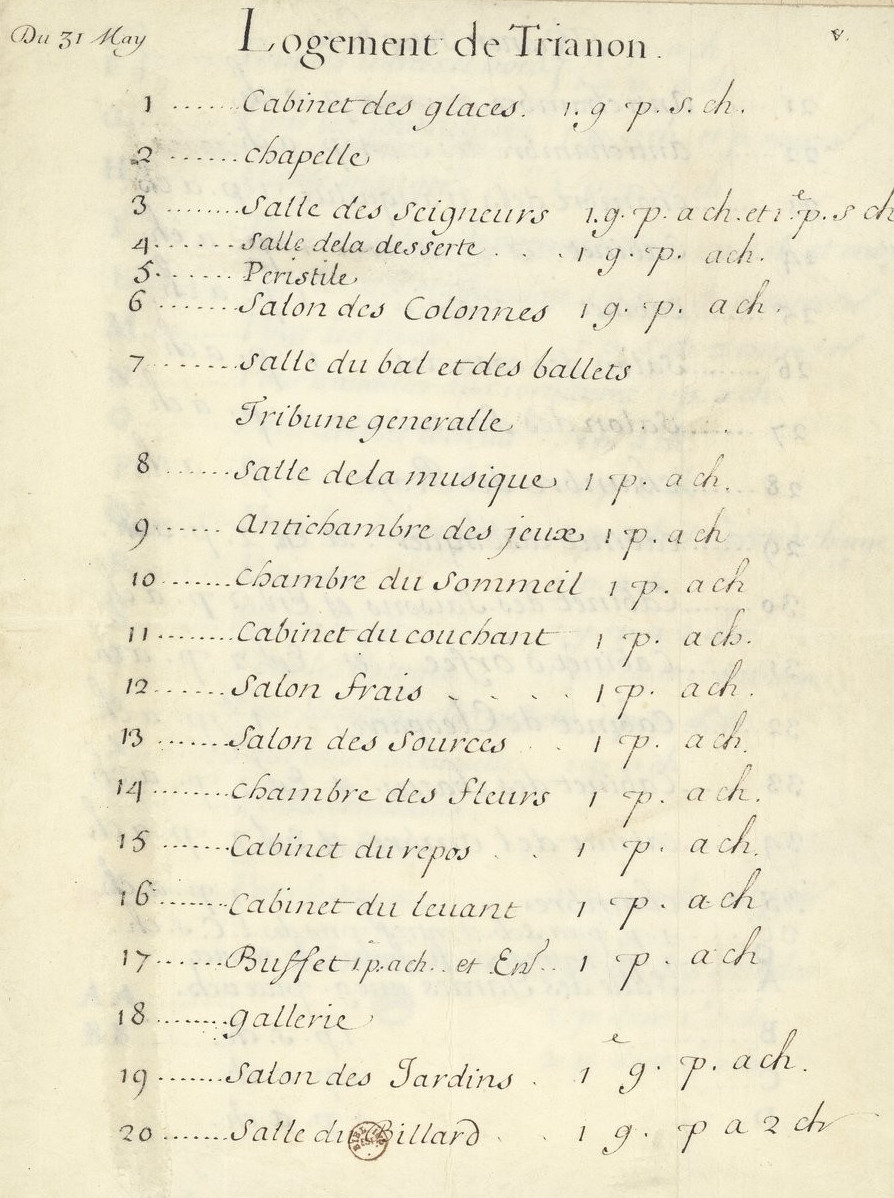 Du 31 May Logement de Trianon. v.
1 ...... Cabinet des glaces. 1. g p. s. ch.
2 ....... chapelle
3 ........ Salle des seigneurs 1. g. p. a ch. et 1.e p. s ch
4. ...... Salle dela desserte . . . 1 g. p. ach.
5. ...... Peristile
6 ....... Salon des Colonnes 1 g. p. a ch.
7 ........ Salle du bal et des ballets
Tribune generalle
8 ....... Salle dela musique 1 p. a ch.
9 ..... Antichambre des jeux 1 p. a ch
10 ....... Chambre du Sommeil 1 p. a ch
11 ........ Cabinet du couchant 1 p. a ch.
12 ....... Salon frais . . . . 1 p. a ch.
13 ....... Salon des Sources . . 1 p. a ch.
14 ........ Chambre des fleurs 1 p. a ch.
15 ...... Cabinet du repos . . 1 p. a ch.
16 ....... Cabinet du leuant 1 p. a ch
17 ...... Buffet 1 p. a ch. et .. 1 p. a ch
18 ....... gallerie
19 ....... Salon des Jardins . 1e g. p. a ch.
20 ....... Salle du Billard . . 1 g. p a 2 ch